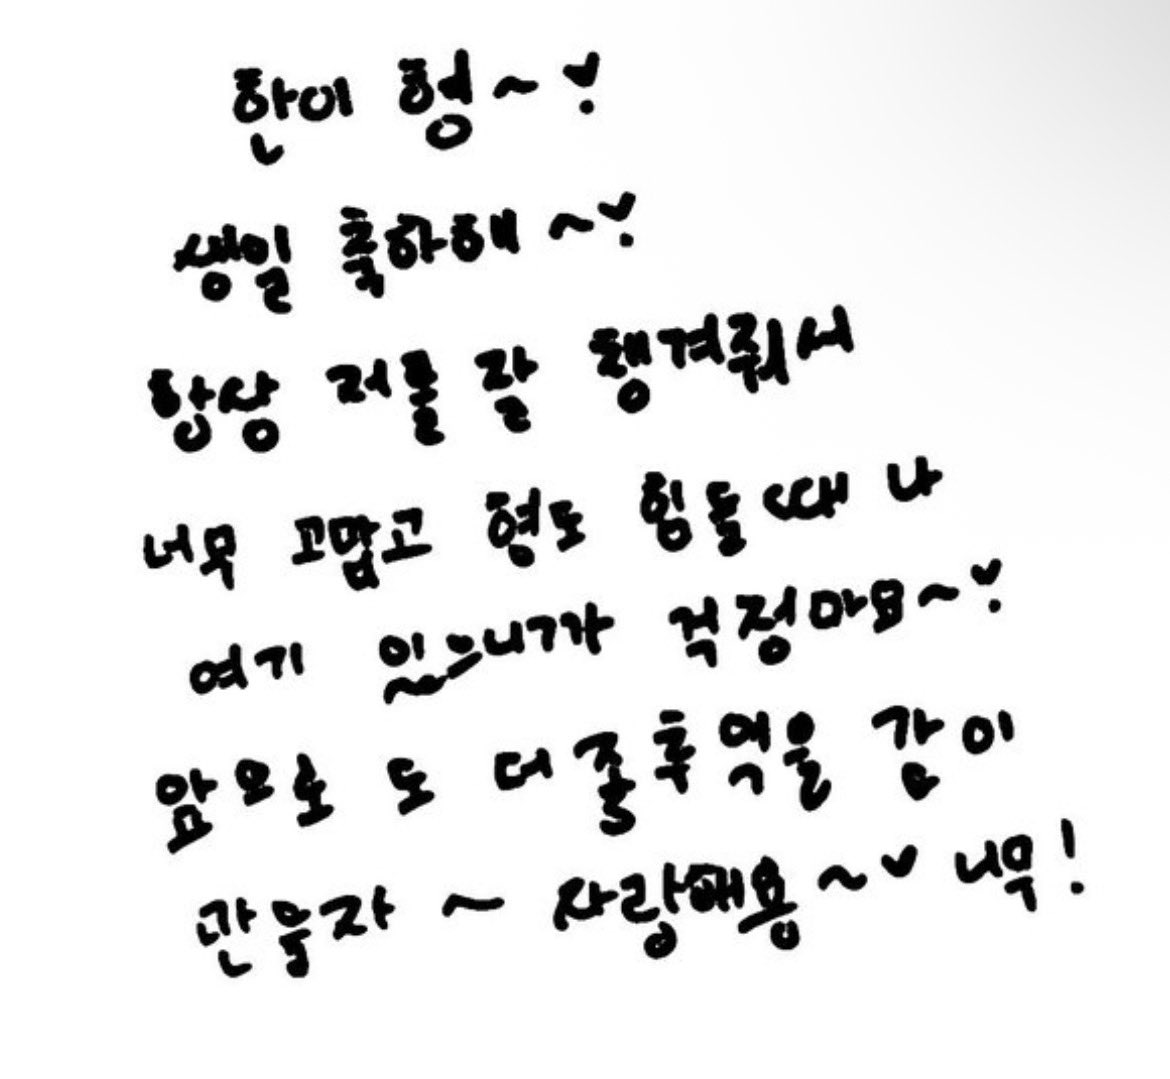 한이 형~♥
생일 축하해~♥
항상 저를 잘 챙겨줘서
너무 고맙고 형도 힘들때 나
여기 있으니까 걱정마요~♥
앞으로 도 더 줄후억을 같이
만들자 ~ 사랑해용~♥ 너무!